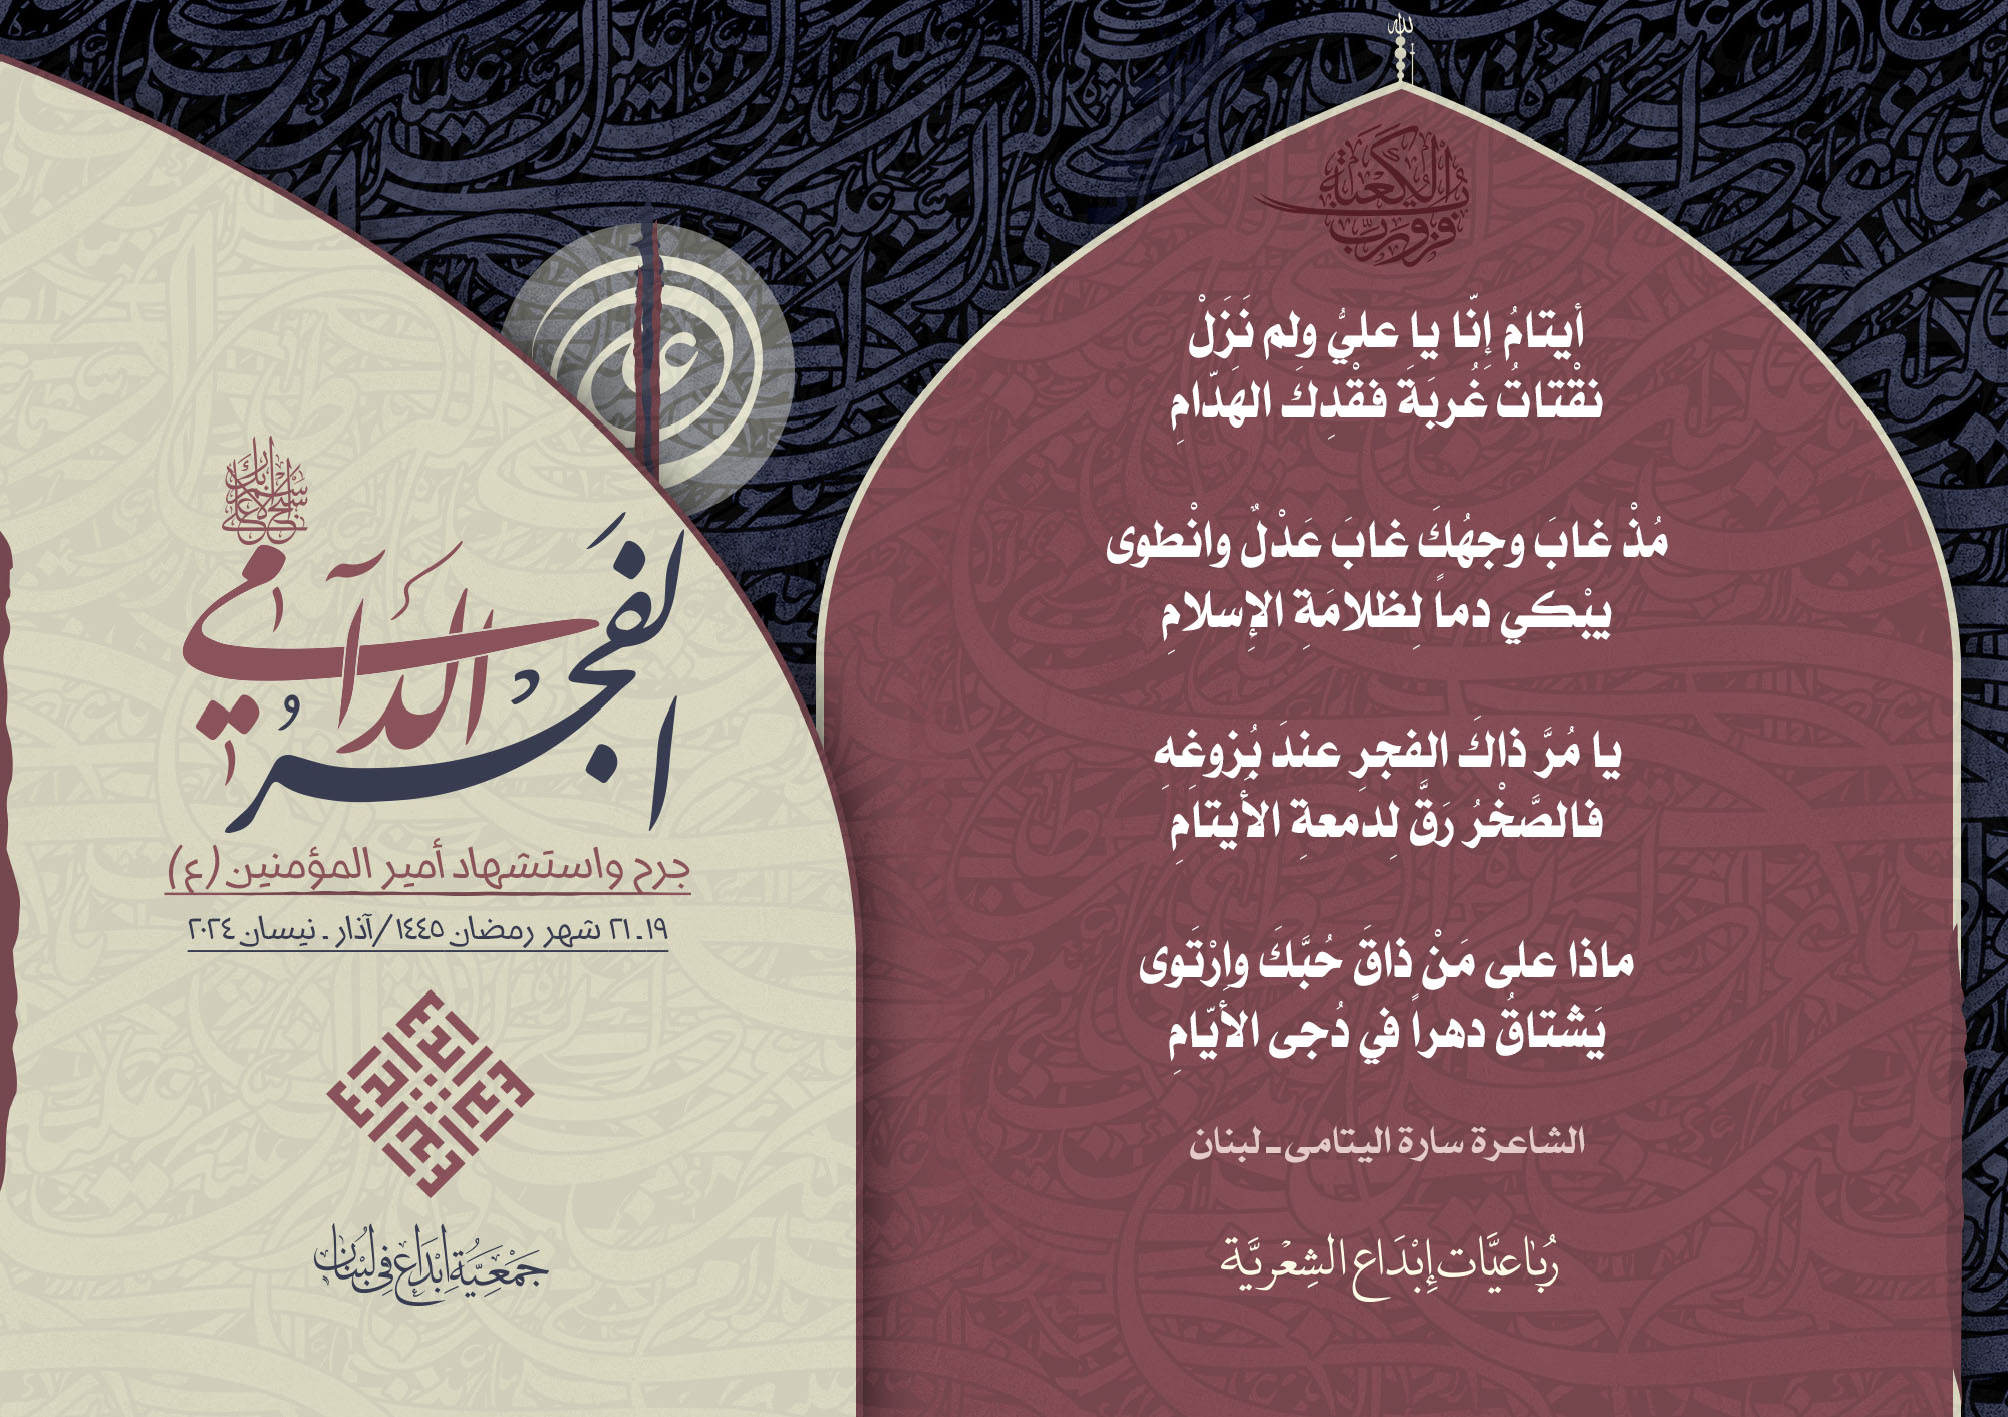 الله
فزت ورب الكعبة
أيتامُ إنّا يا عليُّ ولم نَزَلْ
نقْتاتُ غُربَةِ فقْدِكَ الهدّامِ
مُذْ غابَ وجهُكَ غابَ عَدْلٌ وانْطوى
يبْكي دماً لِظلامَةِ الإسلامِ
يا مُرَّ ذاكَ الفجرِ عندَ بُزوغهِ
فالصَّخْرُ رَقَّ لِدمعةِ الأيتامِ
ماذا على مَنْ ذاقَ حُبَّكَ وارْتَوى
يَشتاقُ دهراً في دُجى الأيّامِ
الشاعرة سارة اليتامى - لبنان
رُبَاعيَّات إِبْدَاع الشِعْريَّة
علي
سَبِّحِ اسْمَ رَبِّكَ الأَعْلَى
الفَجْرُ الدَّامِي
جرح واستشهاد أمير المؤمنين (ع)
١٩ـ٢١ شهر رمضان ١٤٤٥/آذار ـ نيسان ٢٠٢٤
جَمْعِيَّةُ إِبْدَاع فِي لُبْنَان